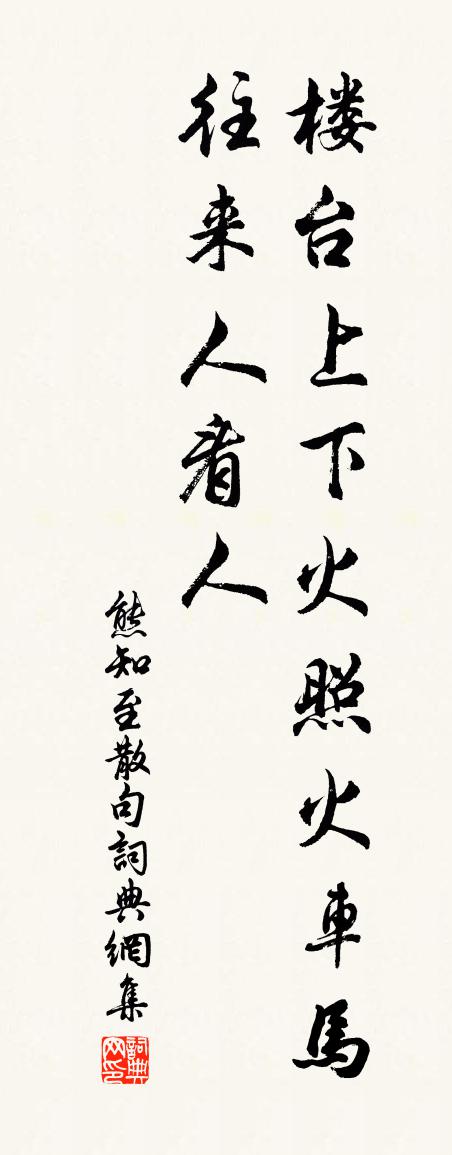 楼台上下火照火車馬
往来人看人
熊知至散句詞典網集
詞典网印